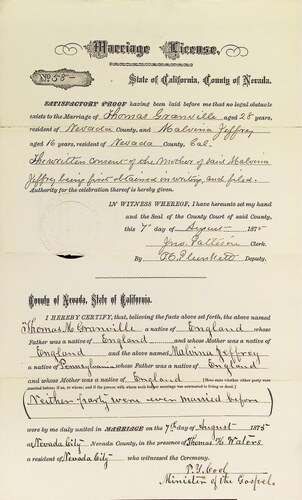 Marriage License.
No. 58
State of California, County of Nevada.
SATISFACTORY PROOF having been laid before me that no legal obstacle
exists to the Marriage of Thomas Granville aged 28 years,
resident of Nevada County, and Malvina Jeffrey
aged 16 years, resident of Nevada County, Cal.
The written consent of the Mother of said Malvina
Jeffrey being first obtained in writing, and filed.
Authority for the celebration thereof is hereby given.
IN WITNESS WHEREOF, I have hereunto set my hand
and the Seal of the County Court of said County,
this 7th day of August 1875
Jno. Pattison Clerk.
By Deputy.
County of Nevada, State of California.
I HEREBY CERTIFY, that, believing the facts above set forth, the above named
Thomas M. Granville a native of England whose
Father was a native of England and whose Mother was a native of
England and the above named Malvina Jeffrey
a native of Pennsylvania whose Father was a native of England
and whose Mother was a native of England
(Neither party were ever married before)
were by me duly united in MARRIAGE on the 7th day of August 1875
at Nevada City Nevada County, in the presence of Thomas H. Waters
a resident of Nevada City who witnessed the Ceremony.
P. Y. Cool
Minister of the Gospel